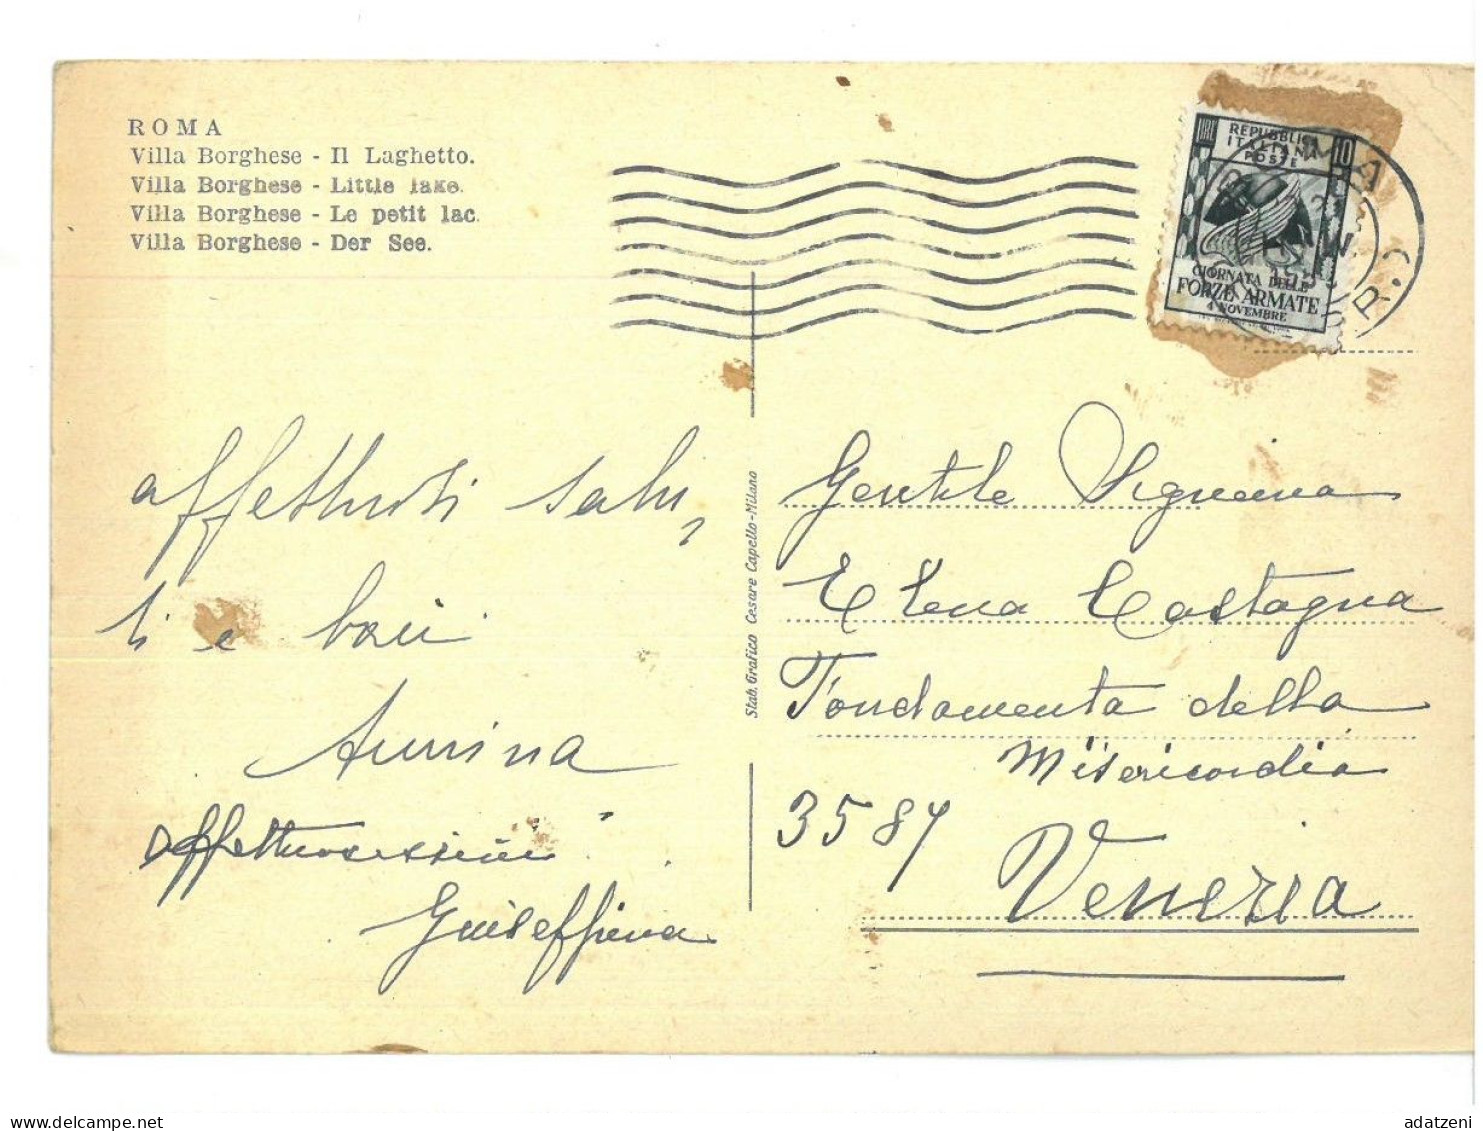 ROMA
Villa Borghese - Il Laghetto.
Villa Borghese - Little lake.
Villa Borghese - Le petit lac.
Villa Borghese - Der See.
LIRE
REPUBBLICA
ITALIANA
POSTE
10
GIORNATA DELLE
FORZE ARMATE
4 NOVEMBRE
Stab. Grafico Cesare Capello-Milano
affettuosi salu,
ti e baci
Annina
affettuosissimi
Guiseffina
Gentile Signorina
Elena Castagna
Fondamenta della
Misericordia
3587
Venezia
adatzeni